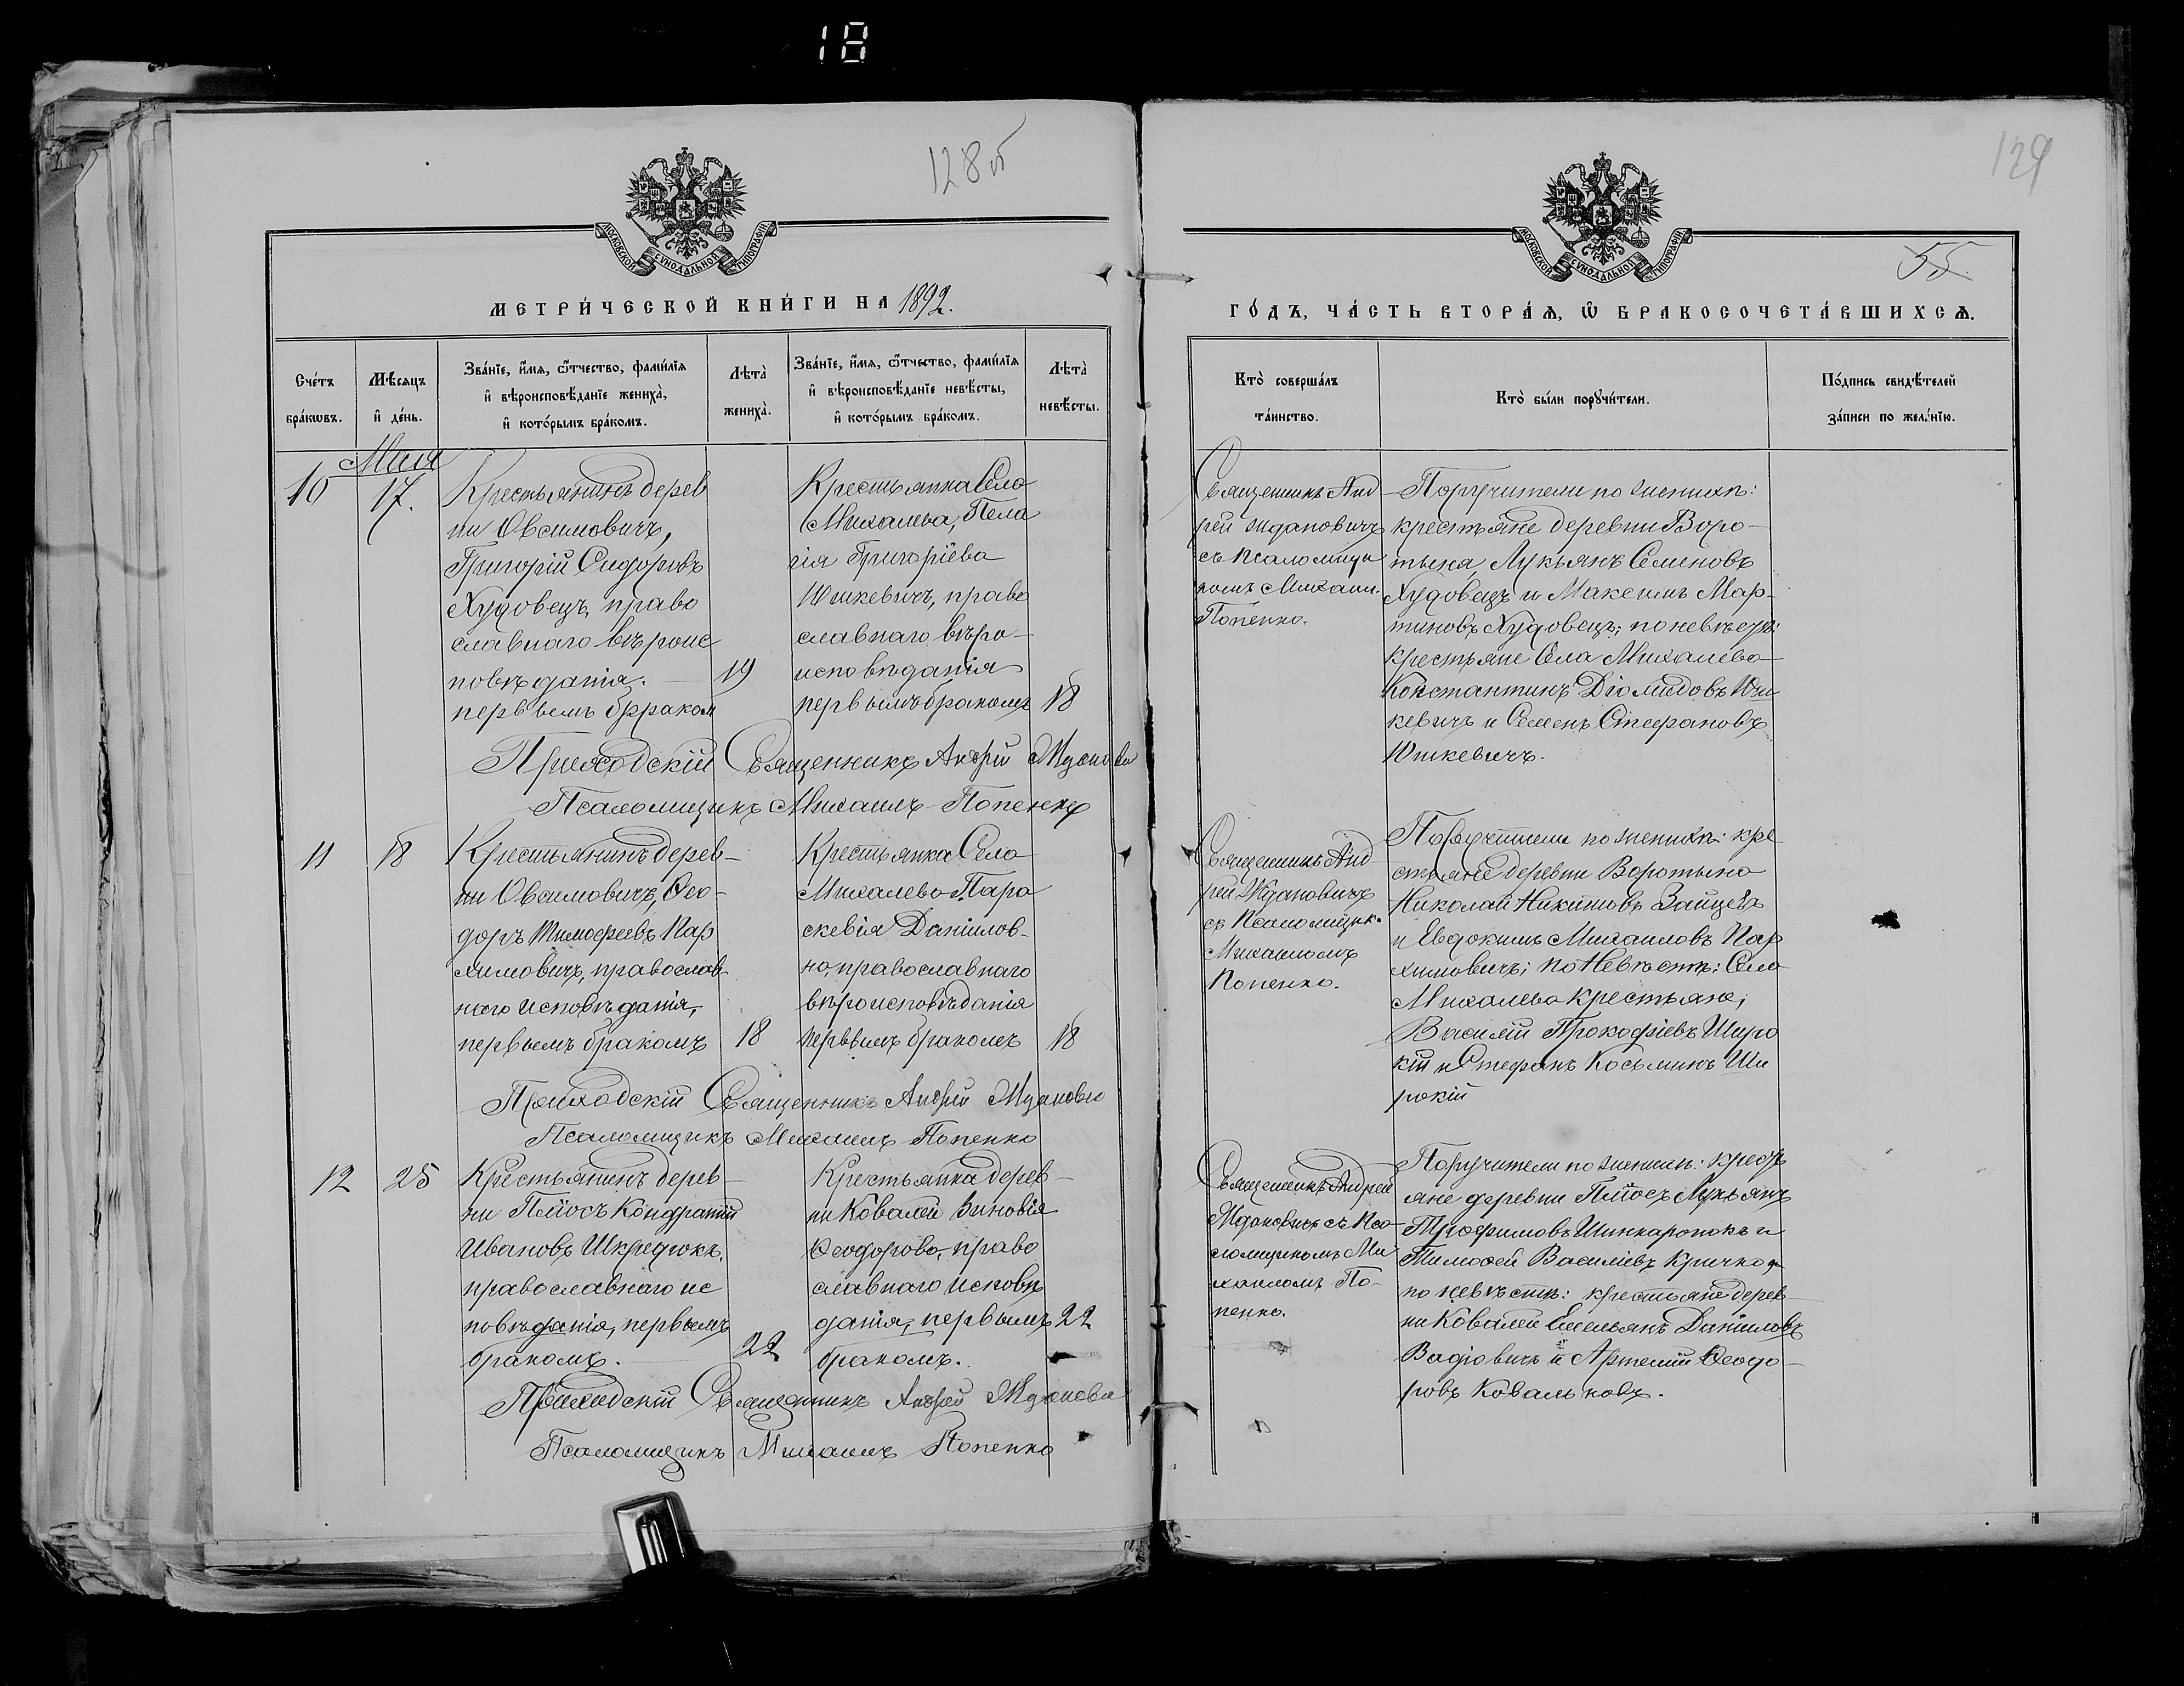 18
128 об
129
55.
МОСКОВСКОЙ СѴНОДАЛЬНОЙ ТИПОГРАФІИ
МОСКОВСКОЙ СѴНОДАЛЬНОЙ ТИПОГРАФІИ
МЕТРИ́ЧЕСКОЙ КНИ́ГИ НА 1892.
Сче́тъ бра́кѡвъ.
Мѣ́сяцъ и҆ де́нь.
Зва́нїе, и҆́мѧ, ѻ҆́тчество, фами́лїѧ
и҆ вѣроисповѣ́данїе жениха̀,
и҆ кото́рымъ бра́комъ.
Лѣта̀ жениха̀.
Зва́нїе, и҆́мѧ, ѻ҆́тчество, фами́лїѧ
и҆ вѣроисповѣ́данїе невѣ́сты,
и҆ кото́рымъ бра́комъ.
Лѣта̀ невѣ́сты.
Мая
10
17.
Крестьянинъ дерев
ни Овсимовичъ,
Григорій Сидоровъ
Худовецъ, право
славнаго вѣроис
повѣданія.
первымъ браком
19
Крестьянка Села
Михалева, Пела
гія Григоріева
Юшкевичъ, право
славнаго вѣро-
исповѣданія
первымъ бракомъ
18
Приходскій Священникъ Андрей Ждановичъ
Псаломщикъ Михаилъ Попенко
11
18
Крестьянинъ дерев-
ни Овсимовичъ, Ѳео-
доръ Тимоѳеевъ Пар
химовичъ, православ
наго исповѣданія,
первымъ бракомъ
18
Крестьянка Села
Михалева Пара
скевія Даніилов-
на, православнаго
вѣроисповѣданія
первымъ бракомъ
18
Приходскій Священникъ Андрей Ждановичъ
Псаломщикъ Михаилъ Попенко
12
25
Крестьянинъ дерев-
ни Плёсъ Кондратій
Ивановъ Шкредюкъ,
православнаго ис
повѣданія, первымъ
бракомъ.
22
Крестьянка дерев-
ни Ковалей Зиновія
Ѳеодорова, право
славнаго исповѣ
данія, первымъ
бракомъ.
22
Приходскій Священникъ Андрей Ждановичъ
Псаломщикъ Михаилъ Попенко
ГО́ДЪ, ЧА́СТЬ ВТОРА́Ѧ, Ѡ҆ БРАКОСОЧЕТА́ВШИХСѦ.
Кто̀ соверша́лъ та́инство.
Кто̀ бы́ли порꙋчи́тели.
По́дпись свидѣ́телей за́писи по жела́нїю.
Священникъ Анд
рей Ждановичъ
съ псаломщи
комъ Михаил.
Попенко.
Поручители по женихѣ:
крестьяне деревни Воро-
тына, Лукьянъ Семеновъ
Худовецъ и Максимъ Мар-
тиновъ Худовецъ; по невѣстѣ:
крестьяне Села Михалева
Константинъ Діомидовъ Юш
кевичъ и Семенъ Стефановъ
Юшкевичъ.
Священникъ Анд
рей Ждановичъ
съ Псаломщик.
Михаиломъ
Попенко.
Поручители по женихѣ: кре
стьяне деревни Воротына
Николай Никитовъ Зайцевъ
и Евдокимъ Михаиловъ Пар
химовичъ; по невѣстѣ: Села
Михалева крестьяне,
Василій Прокофіевъ Широ
кій и Стефанъ Косьминъ Ши
рокій
Священникъ Андрей
Ждановичъ съ Пса-
ломщикомъ Ми
хаиломъ По-
пенко.
Поручители по женихѣ: кресть
яне деревни Плёсъ Лукьянъ
Трофимовъ Шинкаронокъ и
Тимоѳей Василіевъ Кричко, а
по невѣстѣ: крестьяне дерев-
ни Ковалей Емельянъ Данииловъ
и Артемій Ѳеодо-
ровъ Ковальковъ.